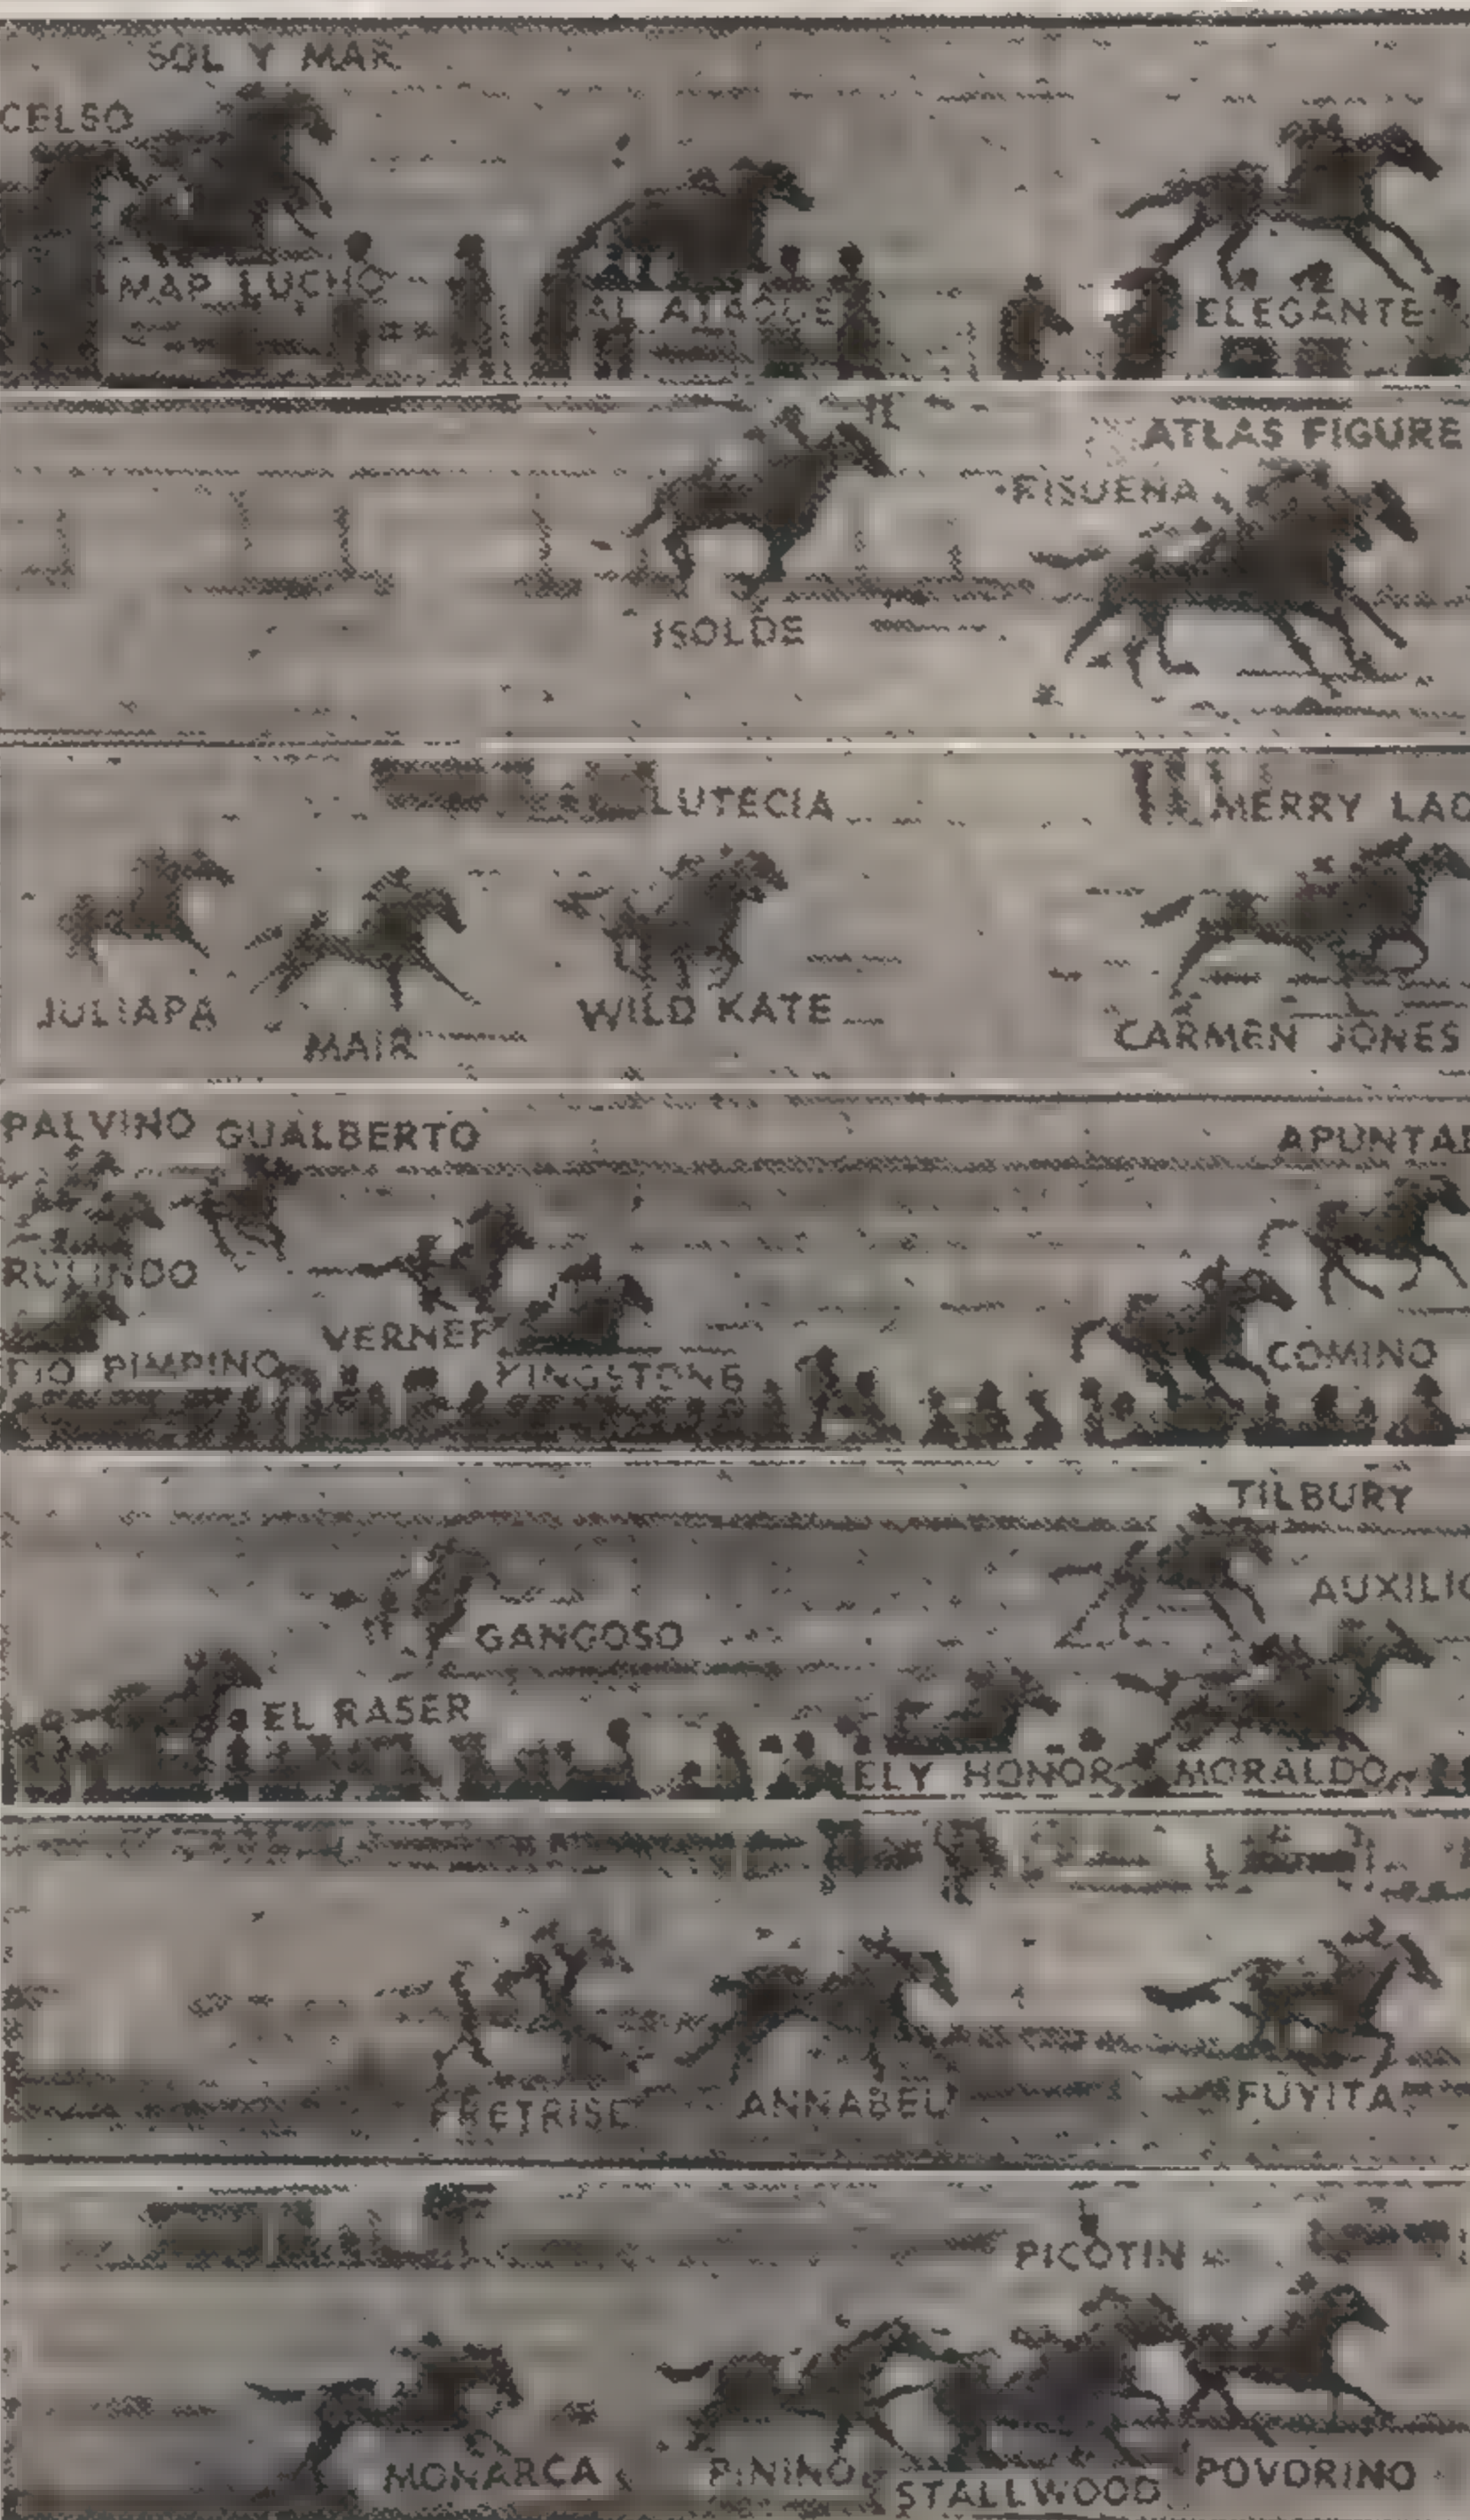 SOL Y MAR
CELSO
MAP LUCHO
AL ATAQUE
ELEGANTE
ATLAS FIGURE
ISOLDE
LUTECIA
MERRY LAC
JULIAPA
MAIR
WILD KATE
CARMEN JONES
PALVINO GUALBERTO
APUNTA
RULINDO
VERNEF
TIO PIMPINO
KINGSTONE
COMINO
TILBURY
AUXILIO
GANGOSO
EL RASER
ELY HONOR MORALDO
FRETRISE
ANNABEL
FUYITA
PICOTIN
MONARCA
PININO
STALLWOOD
POVORINO